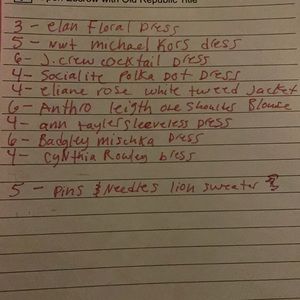 Escrow with Old Republic Title
3 - elan Floral Dress
5 - NWT michael Kors dress
6 - J.crew cocktail Dress
4 - Socialite Polka Dot Dress
4 - eliane rose white tweed Jacket
6 - Anthro leigth one Shoulder Blouse
4 - ann taylor sleeveless Dress
6 - Badgley mischka Dress
4 - Cynthia Rowley Dress
5 - Pins & Needles lion sweater